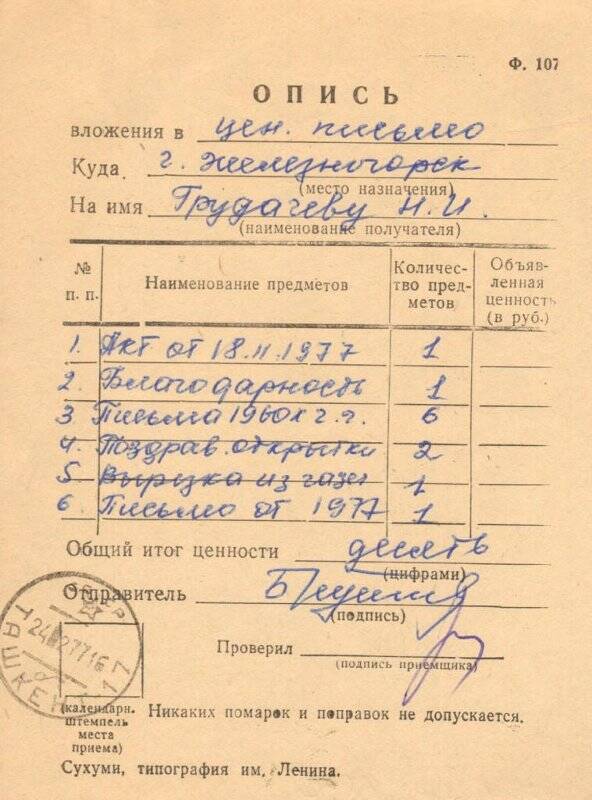 Ф. 107
ОПИСЬ
вложения в цен. письмо
Куда г. Железногорск
(место назначения)
На имя Грудачеву Н.И.
(наименование получателя)
№ п. п. Наименование предметов Количество предметов Объявленная ценность (в руб.)
1. Акт от 18.11.1977 1
2. Благодарность 1
3 Письма 1960х г.г. 6
4. Поздрав. открытки 2
5 Вырезка из газет 1
6. Письмо от 1977 1
Общий итог ценности десять
(цифрами)
Отправитель
(подпись)
Проверил
(подпись приемщика)
ТАШКЕНТ 17
(календарн. штемпель места приема)
Никаких помарок и поправок не допускается.
Сухуми, типография им. Ленина.